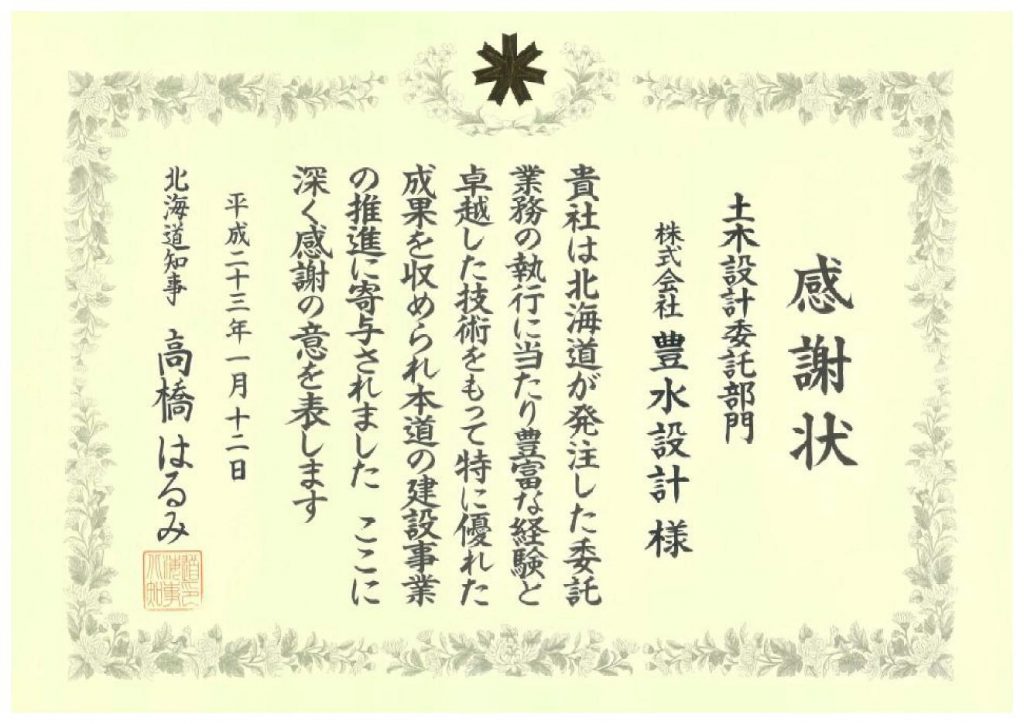 感謝状
土木設計委託部門
株式会社 豊水設計 様
貴社は北海道が発注した委託
業務の執行に当たり豊富な経験と
卓越した技術をもって特に優れた
成果を収められ本道の建設事業
の推進に寄与されました ここに
深く感謝の意を表します
平成二十三年一月十二日
北海道知事 高橋はるみ